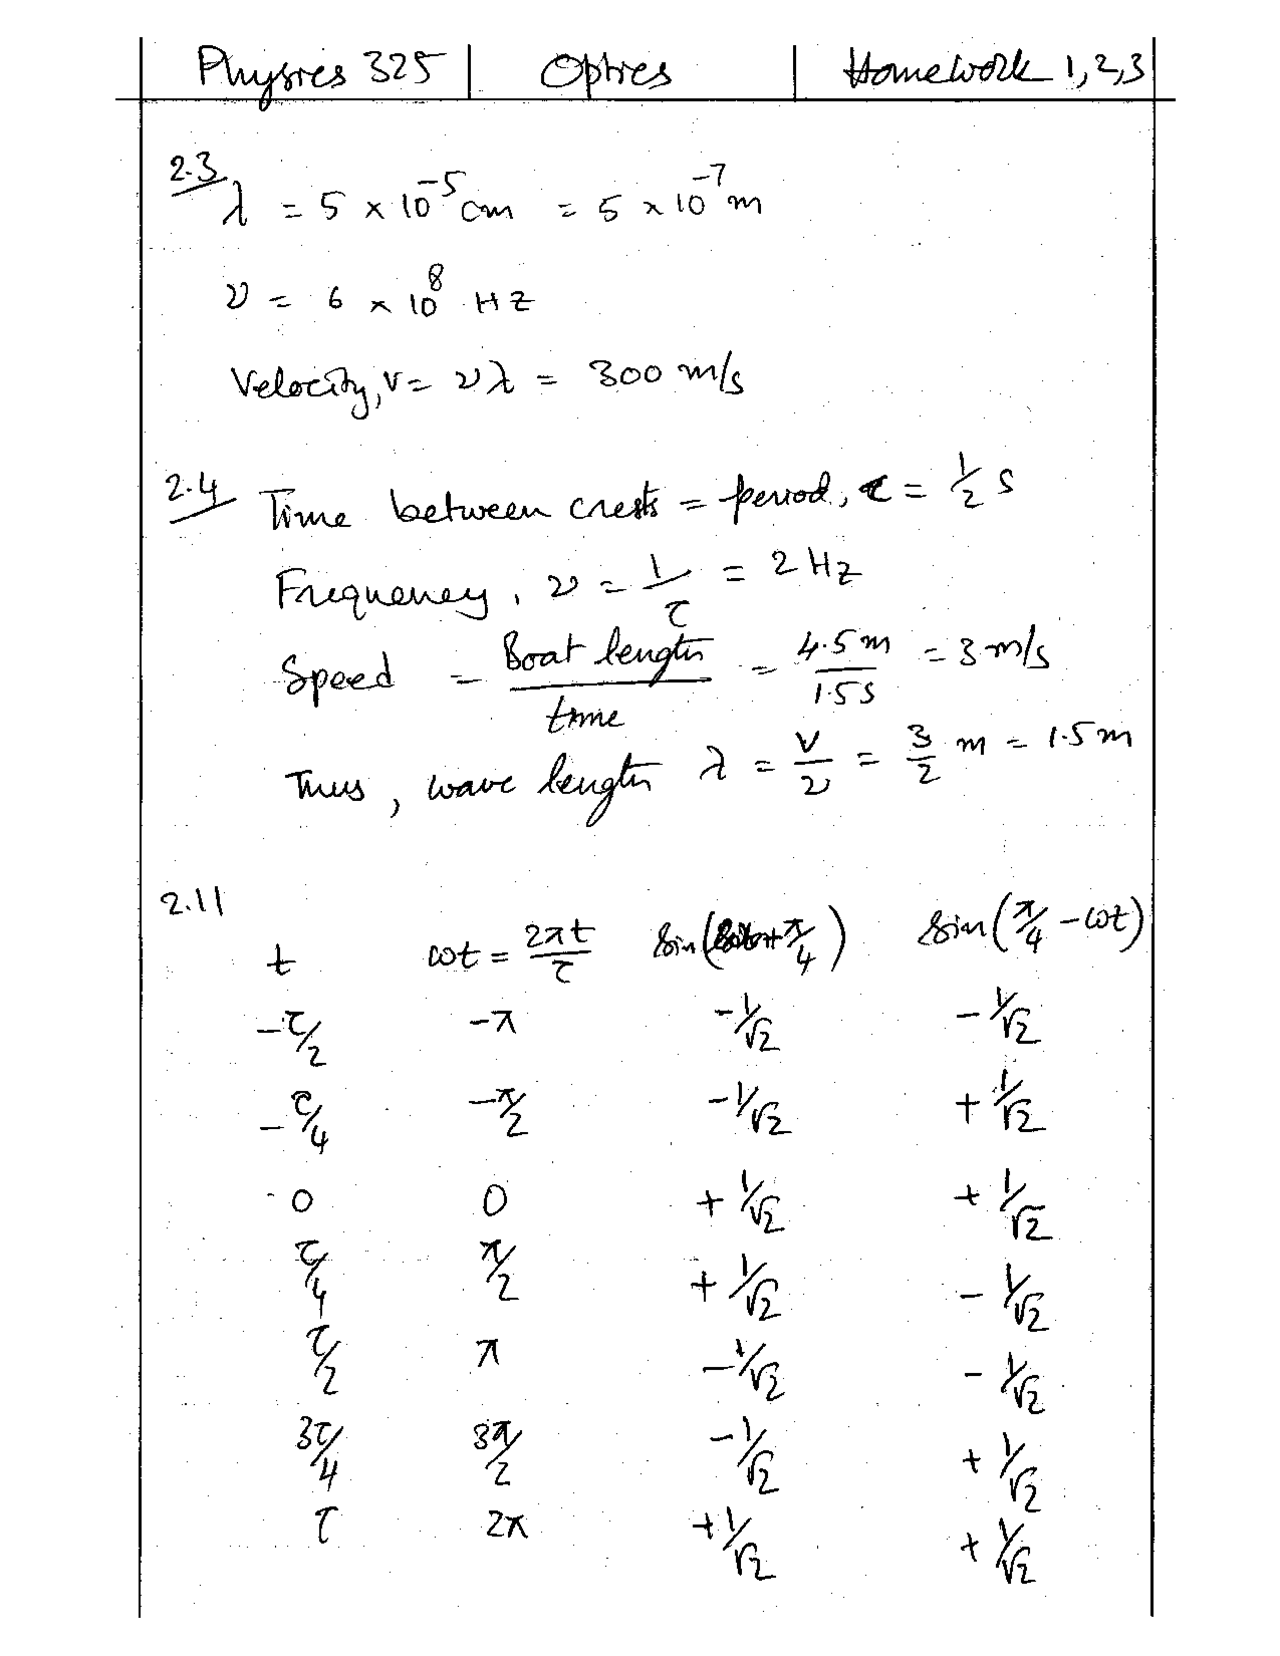 Physics 325 | Optics | Homework 1,2,3
2.3
λ = 5 × 10⁻⁵ cm = 5 × 10⁻⁷ m
ν = 6 × 10⁸ Hz
Velocity, v = νλ = 300 m/s
2.4 Time between crests = period, τ = 1/2 s
Frequency, ν = 1/τ = 2 Hz
Speed = Boat length/time = 4.5m/1.5s = 3 m/s
Thus, wave length λ = v/ν = 3/2 m = 1.5 m
2.11
t ωt = 2πt/τ sin(ωt+π/4) sin(π/4 - ωt)
-τ/2 -π -1/√2 -1/√2
-τ/4 -π/2 -1/√2 +1/√2
0 0 +1/√2 +1/√2
τ/4 π/2 +1/√2 -1/√2
τ/2 π -1/√2 -1/√2
3τ/4 3π/2 -1/√2 +1/√2
τ 2π +1/√2 +1/√2